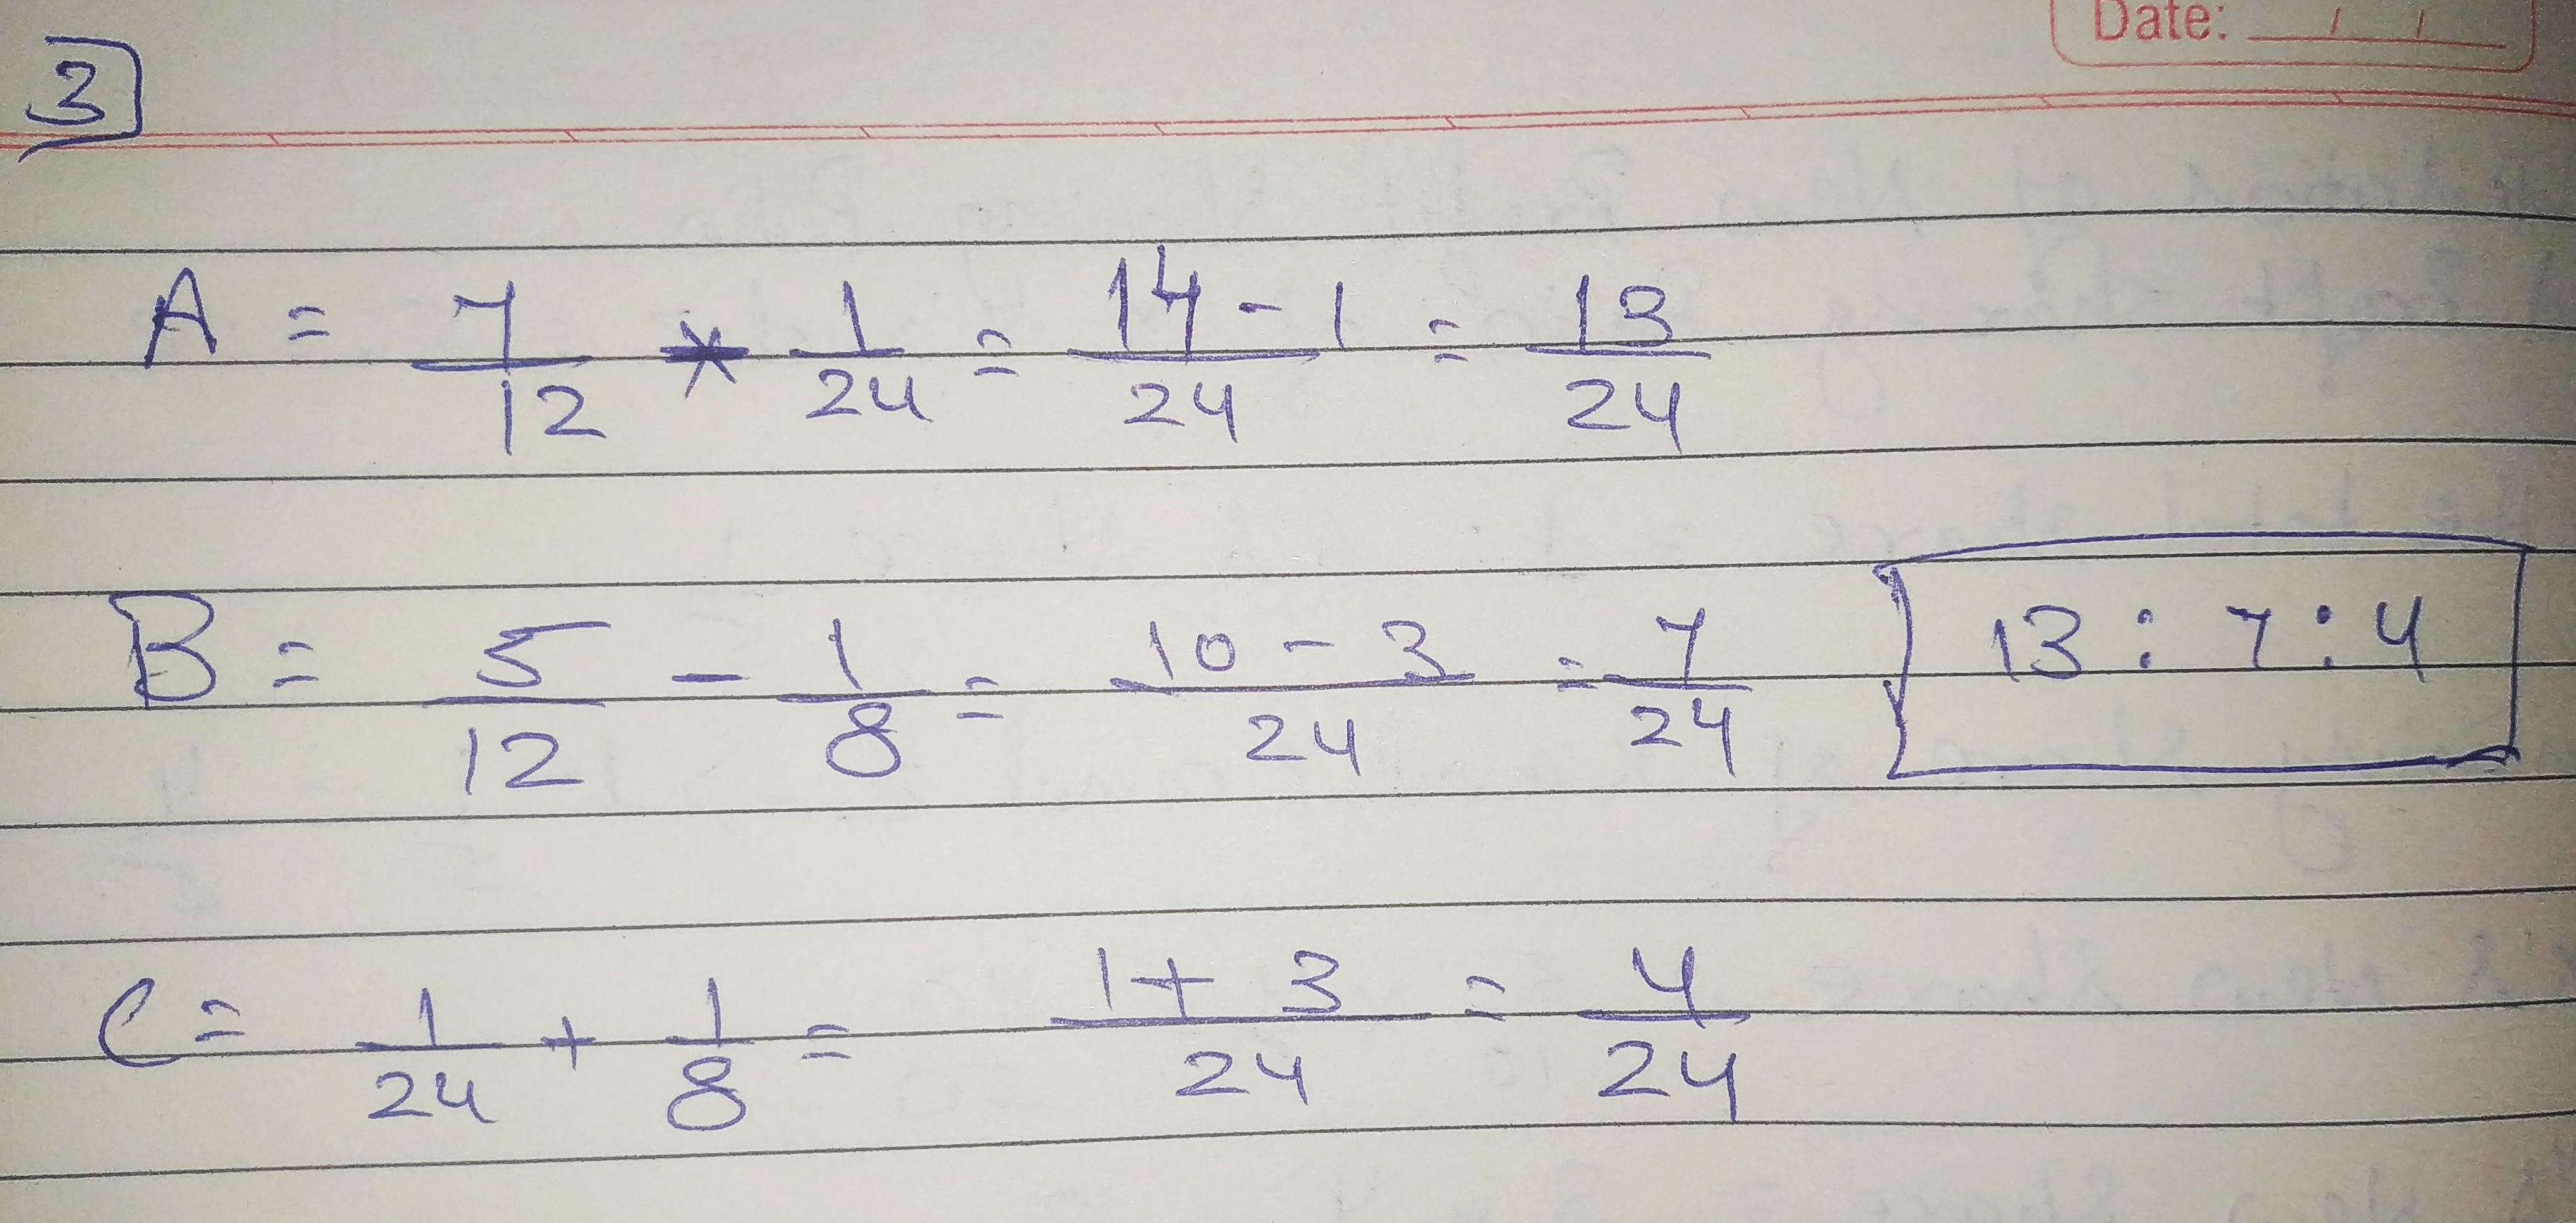 Date: / /
3
A = 7/12 * 1/24 = 14 - 1/24 = 13/24
B = 5/12 - 1/8 = 10 - 3/24 = 7/24 13 : 7 : 4
C = 1/24 + 1/8 = 1 + 3/24 = 4/24